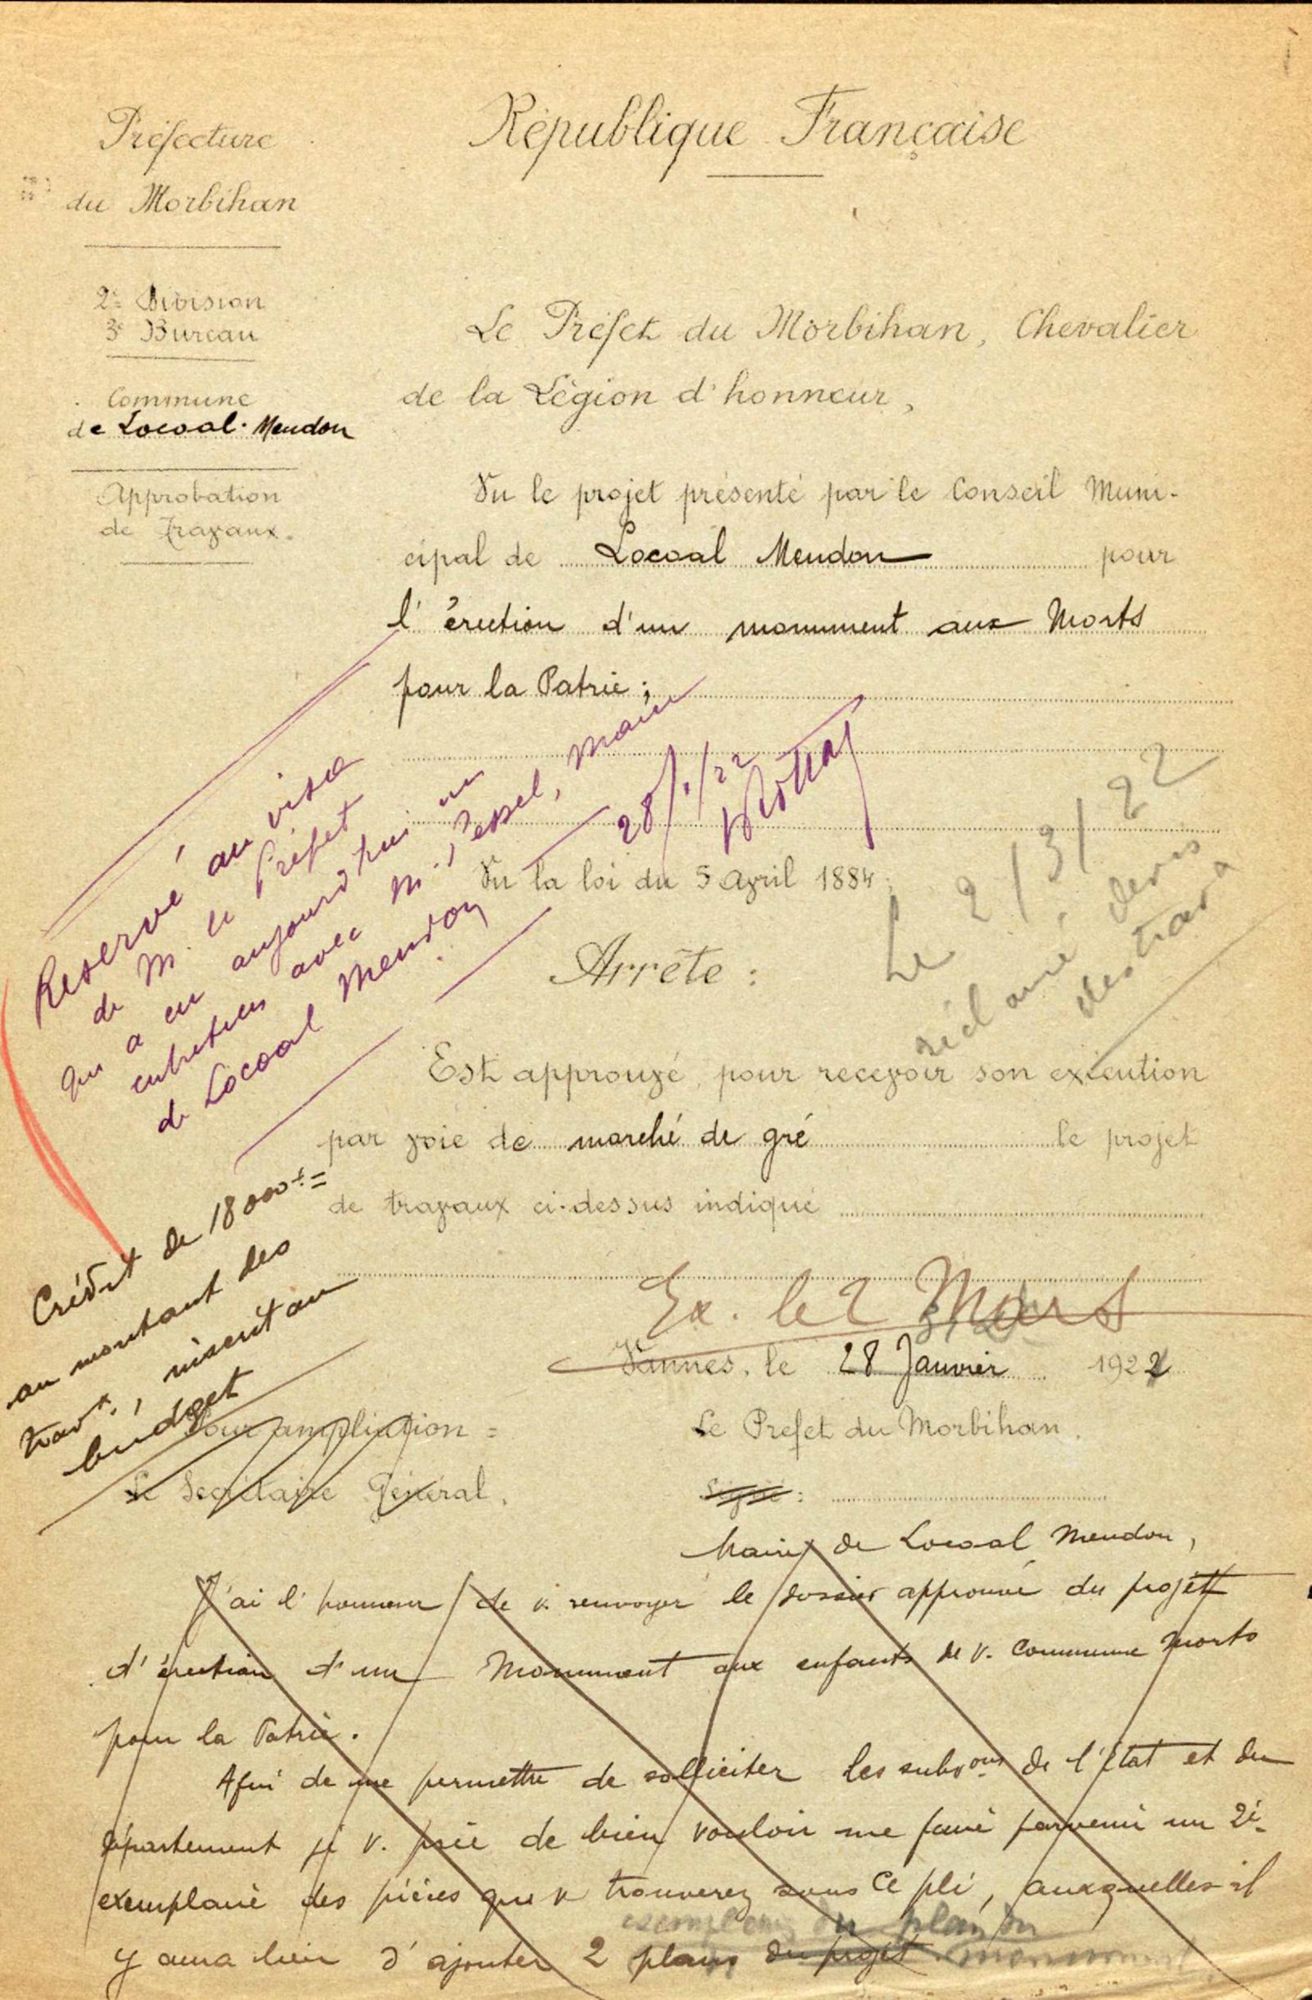 République Française
Préfecture
du Morbihan
2e Division
3e Bureau
Commune
de Locoal-Mendon
Approbation
de Travaux.
Le Préfet du Morbihan, Chevalier
de la Légion d'honneur,
Vu le projet présenté par le Conseil Muni-
cipal de Locoal Mendon pour
l'érection d'un monument aux Morts
pour la Patrie ;
Reservé au visa
de M. le Préfet
qui a eu aujourd'hui un
entretien avec M. Jessel, Maire
de Locoal Mendon
28/1/22
Vu la loi du 5 Avril 1884 ;
Le 2/3/22
réclamé devis
des trava
Arrête :
Est approuvé, pour recevoir son exécution
par voie de marché de gré le projet
de travaux ci-dessus indiqué
Crédit de 18000f =
au montant des
travx, inscrit au
budget
Ex. le 2 Mars
Vannes, le 28 Janvier 1922
Pour ampliation =
Le Secrétaire Général,
Le Préfet du Morbihan,
Signé :
Maire de Locoal Mendon,
J'ai l'honneur de v. renvoyer le dossier approuvé du projet
d'érection d'un Monument aux enfants de v. commune morts
pour la Patrie.
Afin de me permettre de solliciter les subvons de l'Etat et du
département je v. prie de bien vouloir me faire parvenir un 2e
exemplaire des pièces que v. trouverez sous ce pli, auxquelles il
exemplaires du plan du
y aura lieu d'ajouter 2 plans du projet monument.